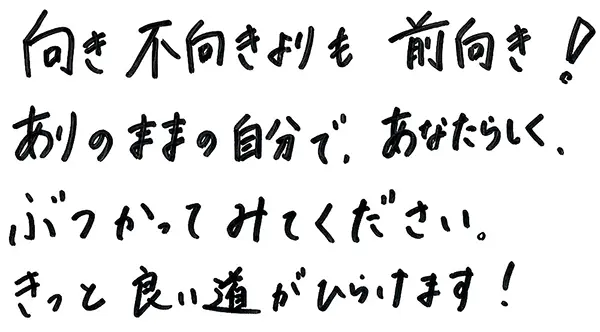 向き不向きよりも 前向き!
ありのままの自分で、あなたらしく、
ぶつかってみてください。
きっと良い道がひらけます!